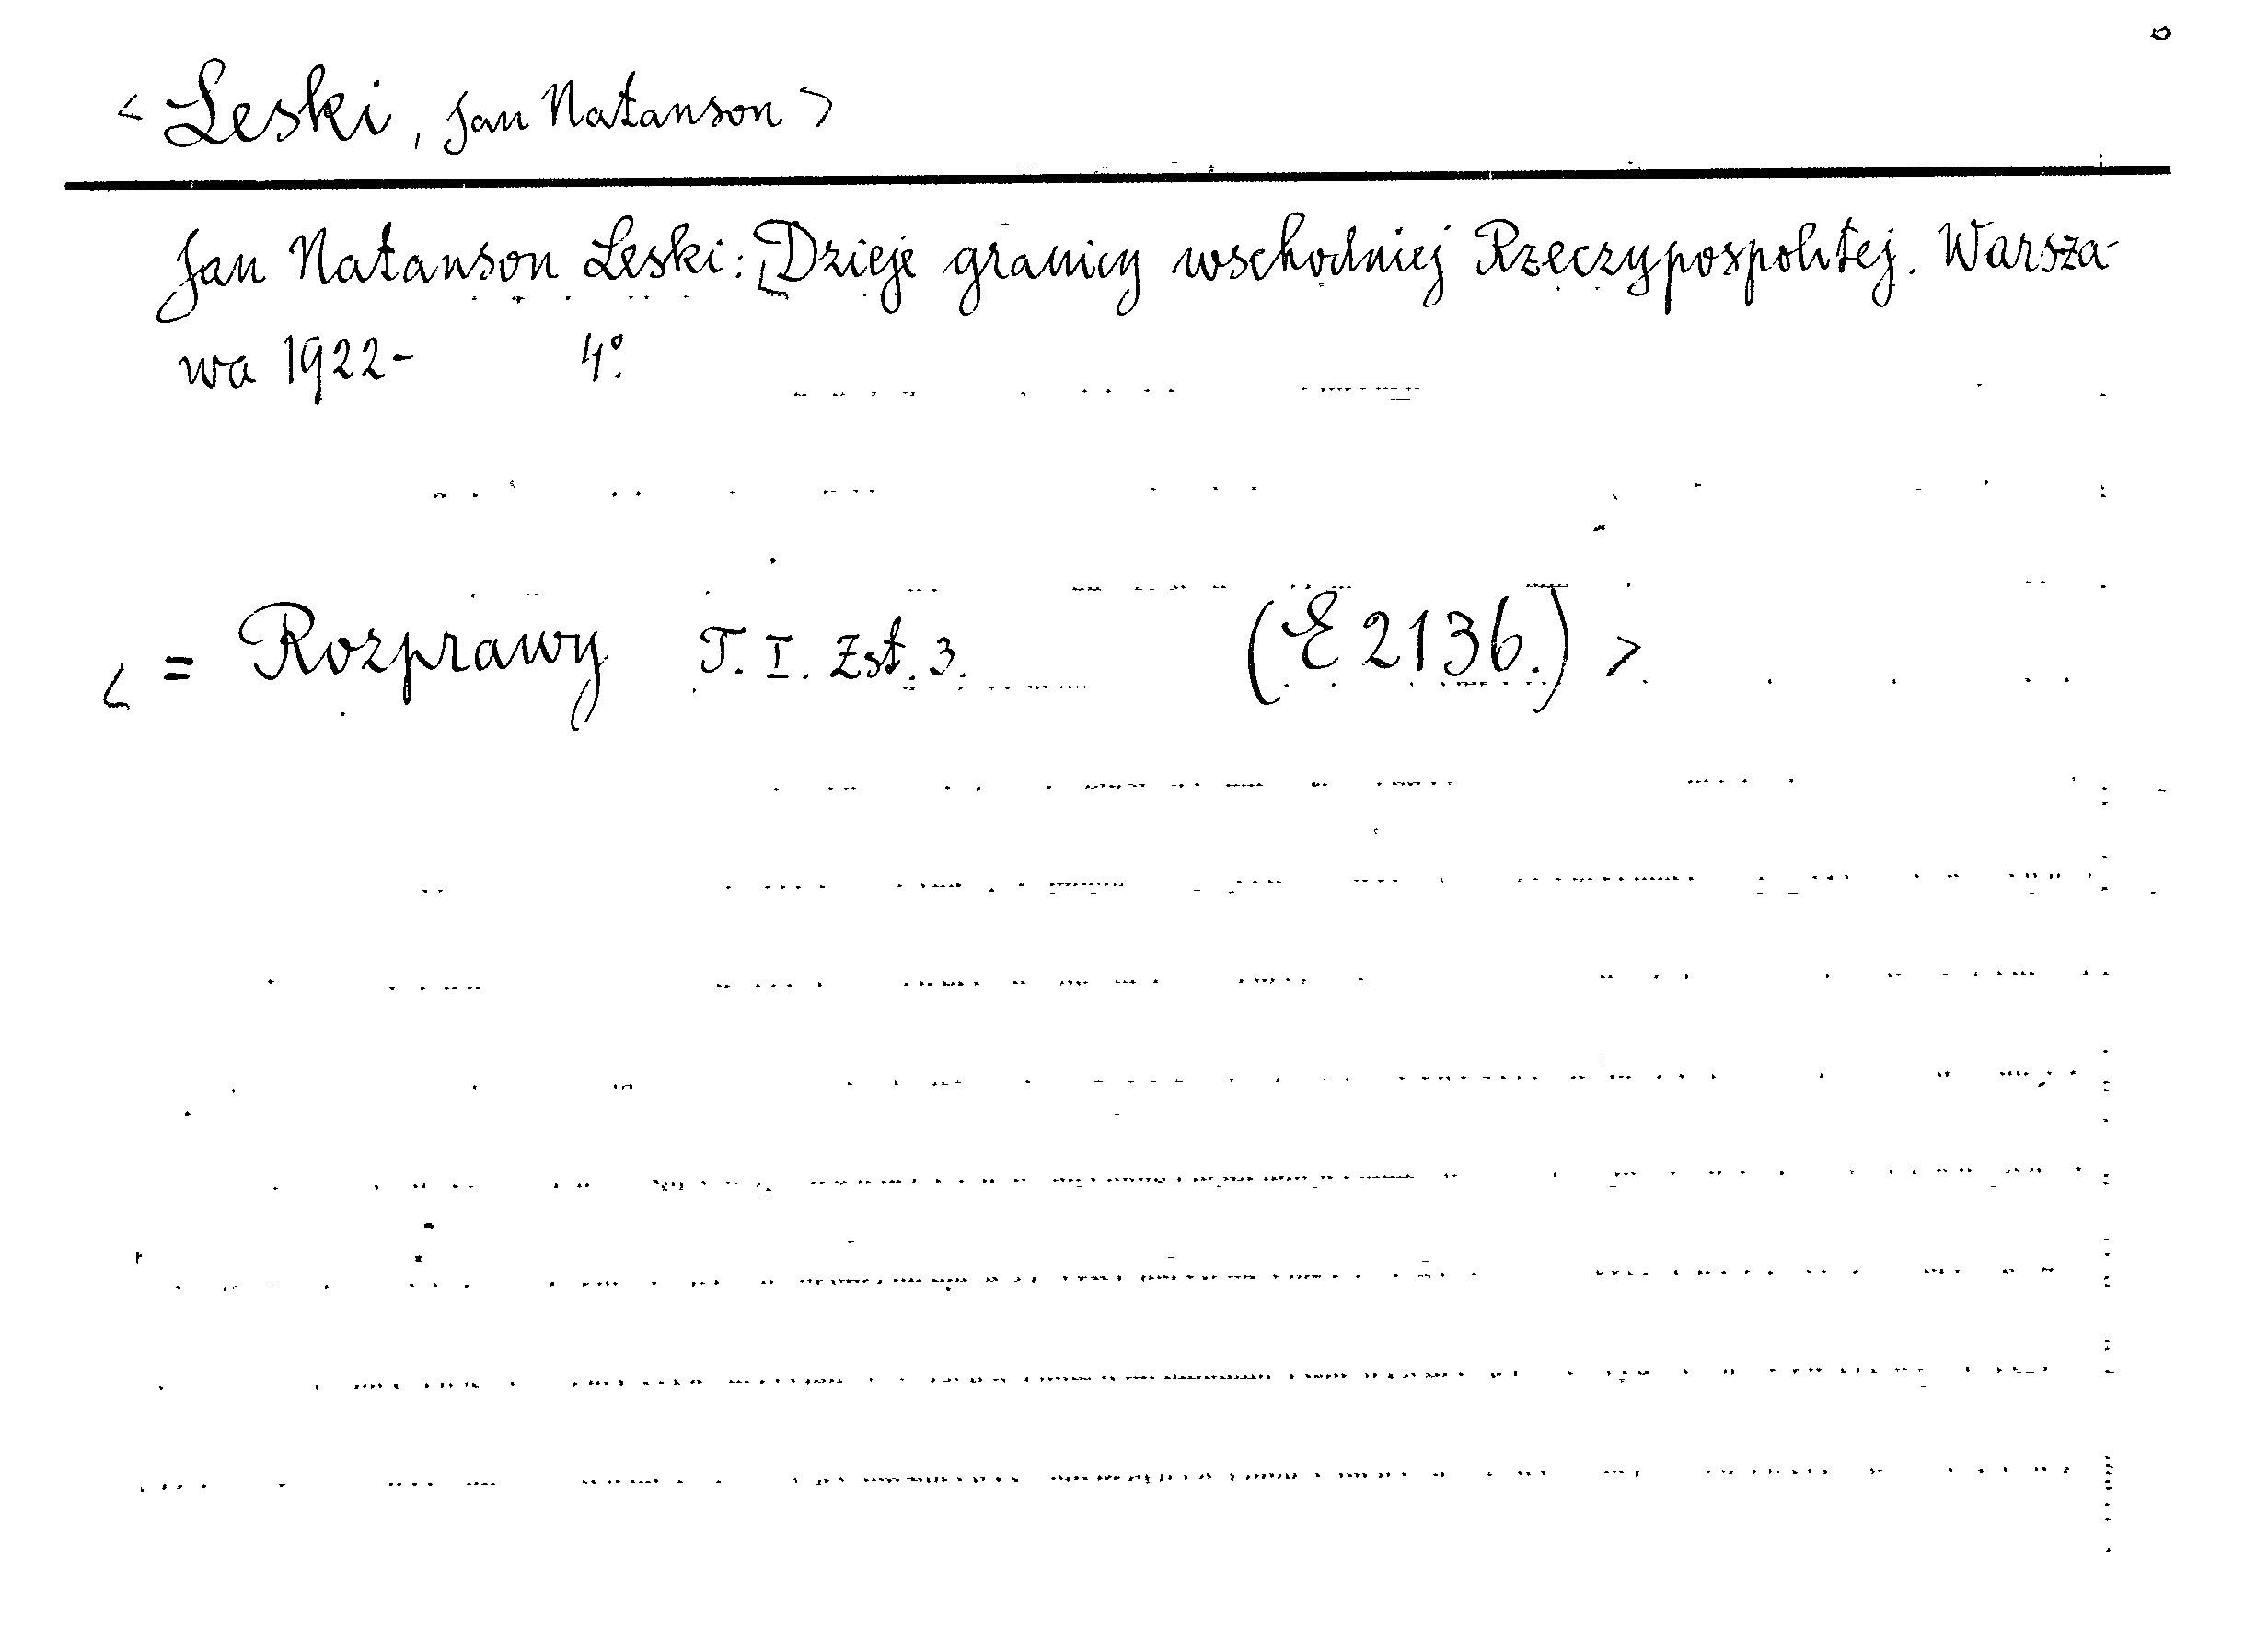 < Leski, Jan Natanson >
Jan Natanson Leski: Dzieje granicy wschodniej Rzeczypospolitej. Warsza-
wa 1922- 4°.
< = Rozprawy T. I. Zst. 3. (E 2136.) >